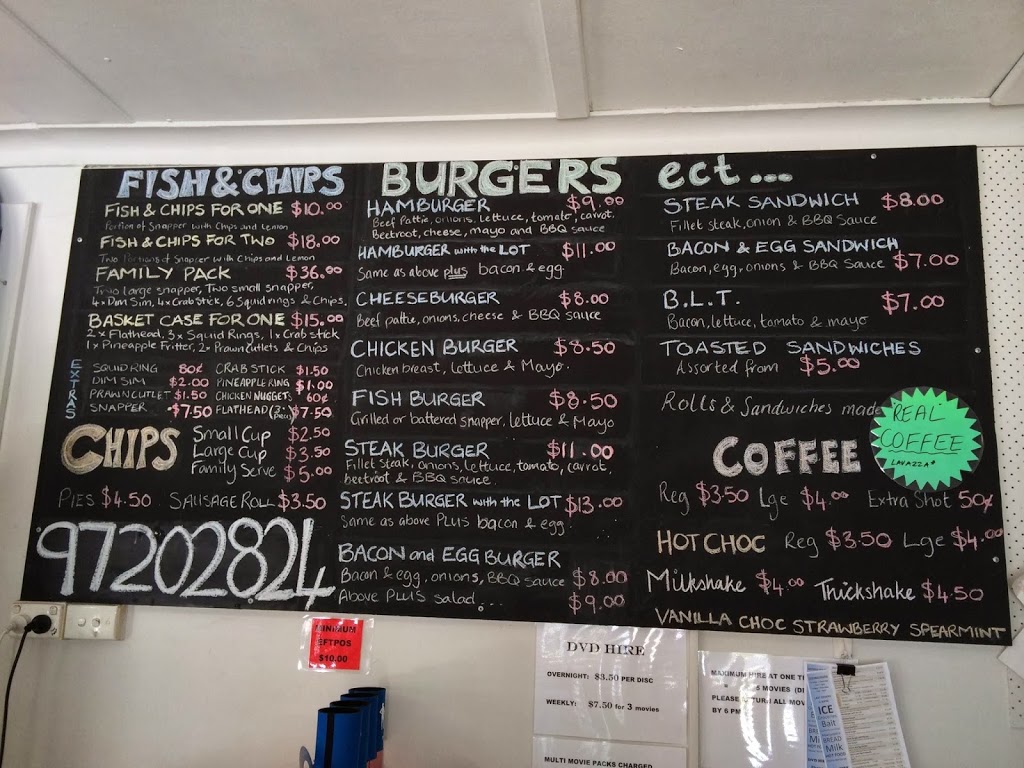 FISH & CHIPS
FISH & CHIPS FOR ONE $10.00
Portion of Snapper with Chips and Lemon
FISH & CHIPS FOR TWO $18.00
Two Portions of Snapper with Chips and Lemon
FAMILY PACK $36.00
Two large snapper, Two small snapper,
4x Dim Sim, 4x Crab Stick, 6 Squid rings & Chips.
BASKET CASE FOR ONE $15.00
2x Flathead, 3x Squid Rings, 1x Crab stick
1x Pineapple Fritter, 2x Prawn Cutlets & Chips
EXTRAS
SQUID RING 80¢ CRAB STICK $1.50
DIM SIM $2.00 PINEAPPLE RING $1.00
PRAWN CUTLET $1.50 CHICKEN NUGGETS 60¢
SNAPPER $7.50 FLATHEAD $7.50
CHIPS
Small Cup $2.50
Large Cup $3.50
Family Serve $5.00
PIES $4.50 SAUSAGE ROLL $3.50
97202824
BURGERS
HAMBURGER $9.00
Beef Pattie, onions, lettuce, tomato, carrot,
Beetroot, cheese, mayo and BBQ sauce
HAMBURGER with the LOT $11.00
Same as above plus bacon & egg
CHEESEBURGER $8.00
Beef pattie, onions, cheese & BBQ sauce
CHICKEN BURGER $8.50
Chicken breast, lettuce & Mayo.
FISH BURGER $8.50
Grilled or battered snapper, lettuce & Mayo
STEAK BURGER $11.00
Fillet steak, onions, lettuce, tomato, carrot,
beetroot & BBQ sauce.
STEAK BURGER with the LOT $13.00
Same as above PLUS bacon & egg.
BACON and EGG BURGER
Bacon & egg, onions, BBQ sauce $8.00
Above PLUS salad.... $9.00
ect...
STEAK SANDWICH $8.00
Fillet steak, onion & BBQ Sauce
BACON & EGG SANDWICH
Bacon, egg, onions & BBQ Sauce $7.00
B.L.T. $7.00
Bacon, lettuce, tomato & mayo
TOASTED SANDWICHES
Assorted from $5.00
Rolls & Sandwiches made
REAL
COFFEE
LAVAZZA
COFFEE
Reg $3.50 Lge $4.00 Extra Shot 50¢
HOT CHOC Reg $3.50 Lge $4.00
Milkshake $4.00 Thickshake $4.50
VANILLA CHOC STRAWBERRY SPEARMINT
MINIMUM
EFTPOS
$10.00
DVD HIRE
OVERNIGHT: $3.50 PER DISC
WEEKLY: $7.50 for 3 movies
MULTI MOVIE PACKS CHARGED
MAXIMUM HIRE AT ONE
MOVIES
PLEASE
ALL MOV
BY 6 PM
ICE
Bait
BREAD
Milk